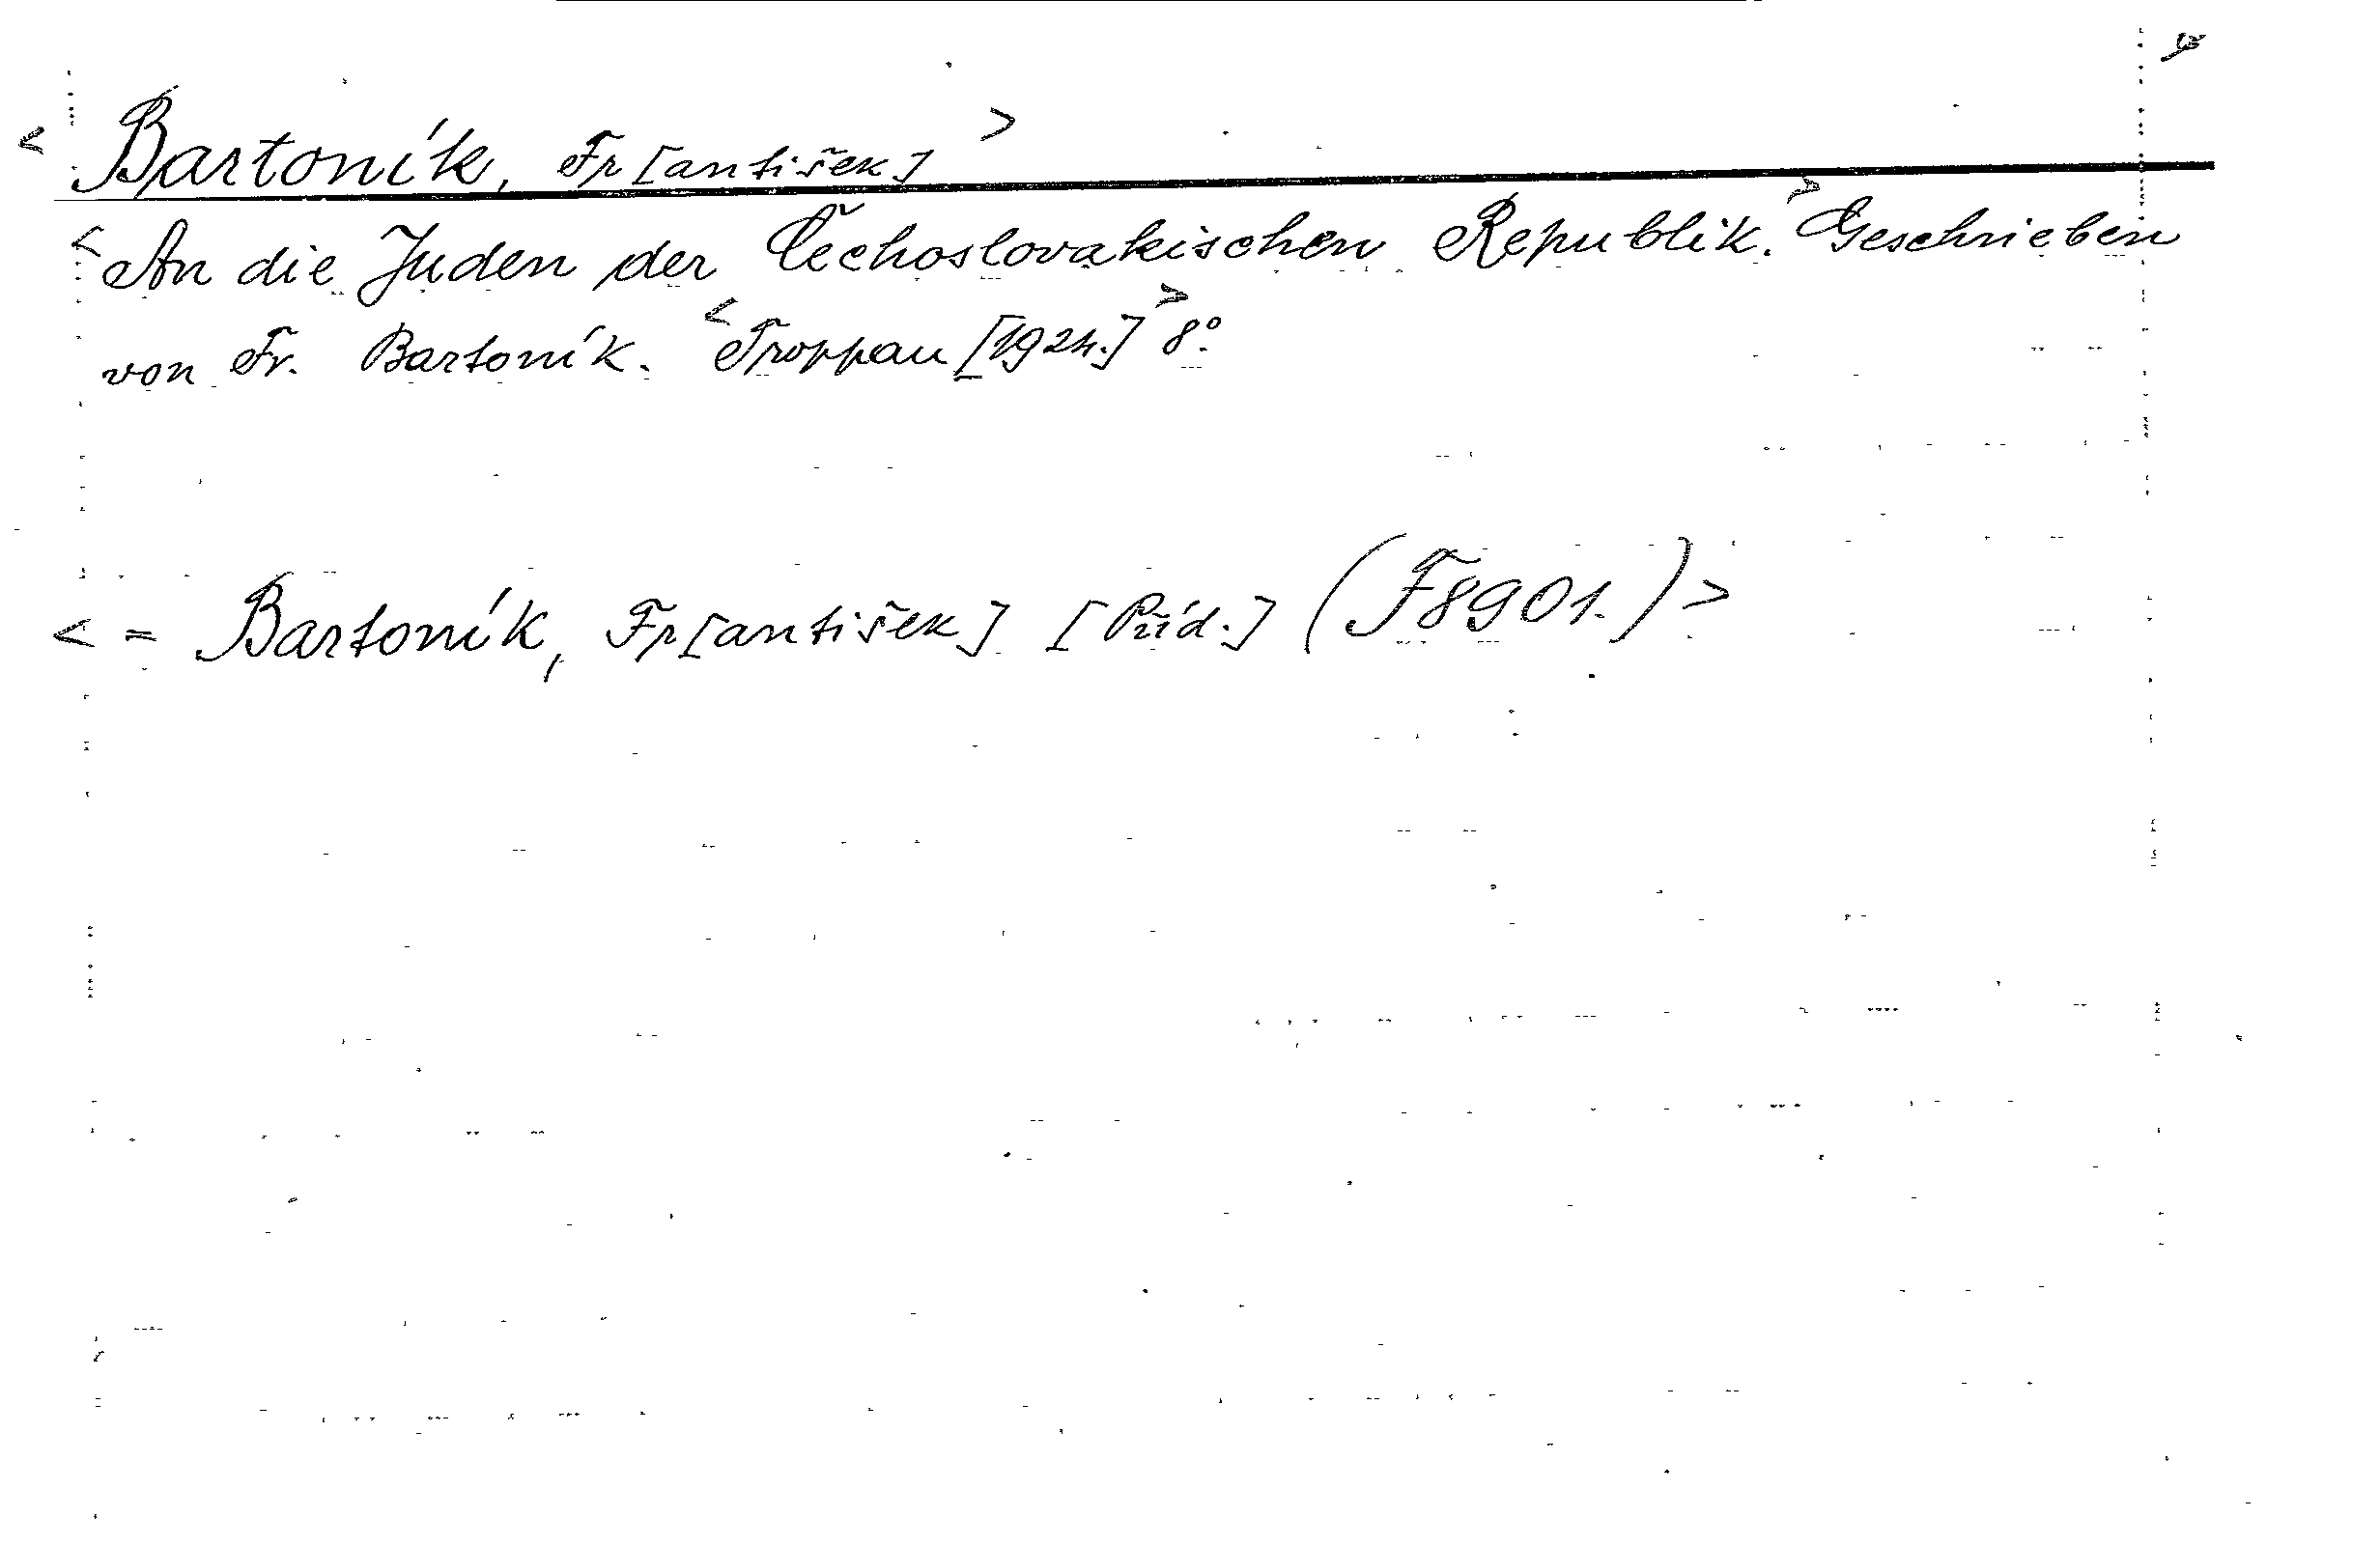 < Bartoník, Fr[antišek] >
< An die Juden der Čechoslovakischen Republik. > Geschrieben
von Fr. Bartoník. < Troppau [1924.] > 8°.
< = Bartoník, Fr[antišek] [Příd.] (F8901.) >